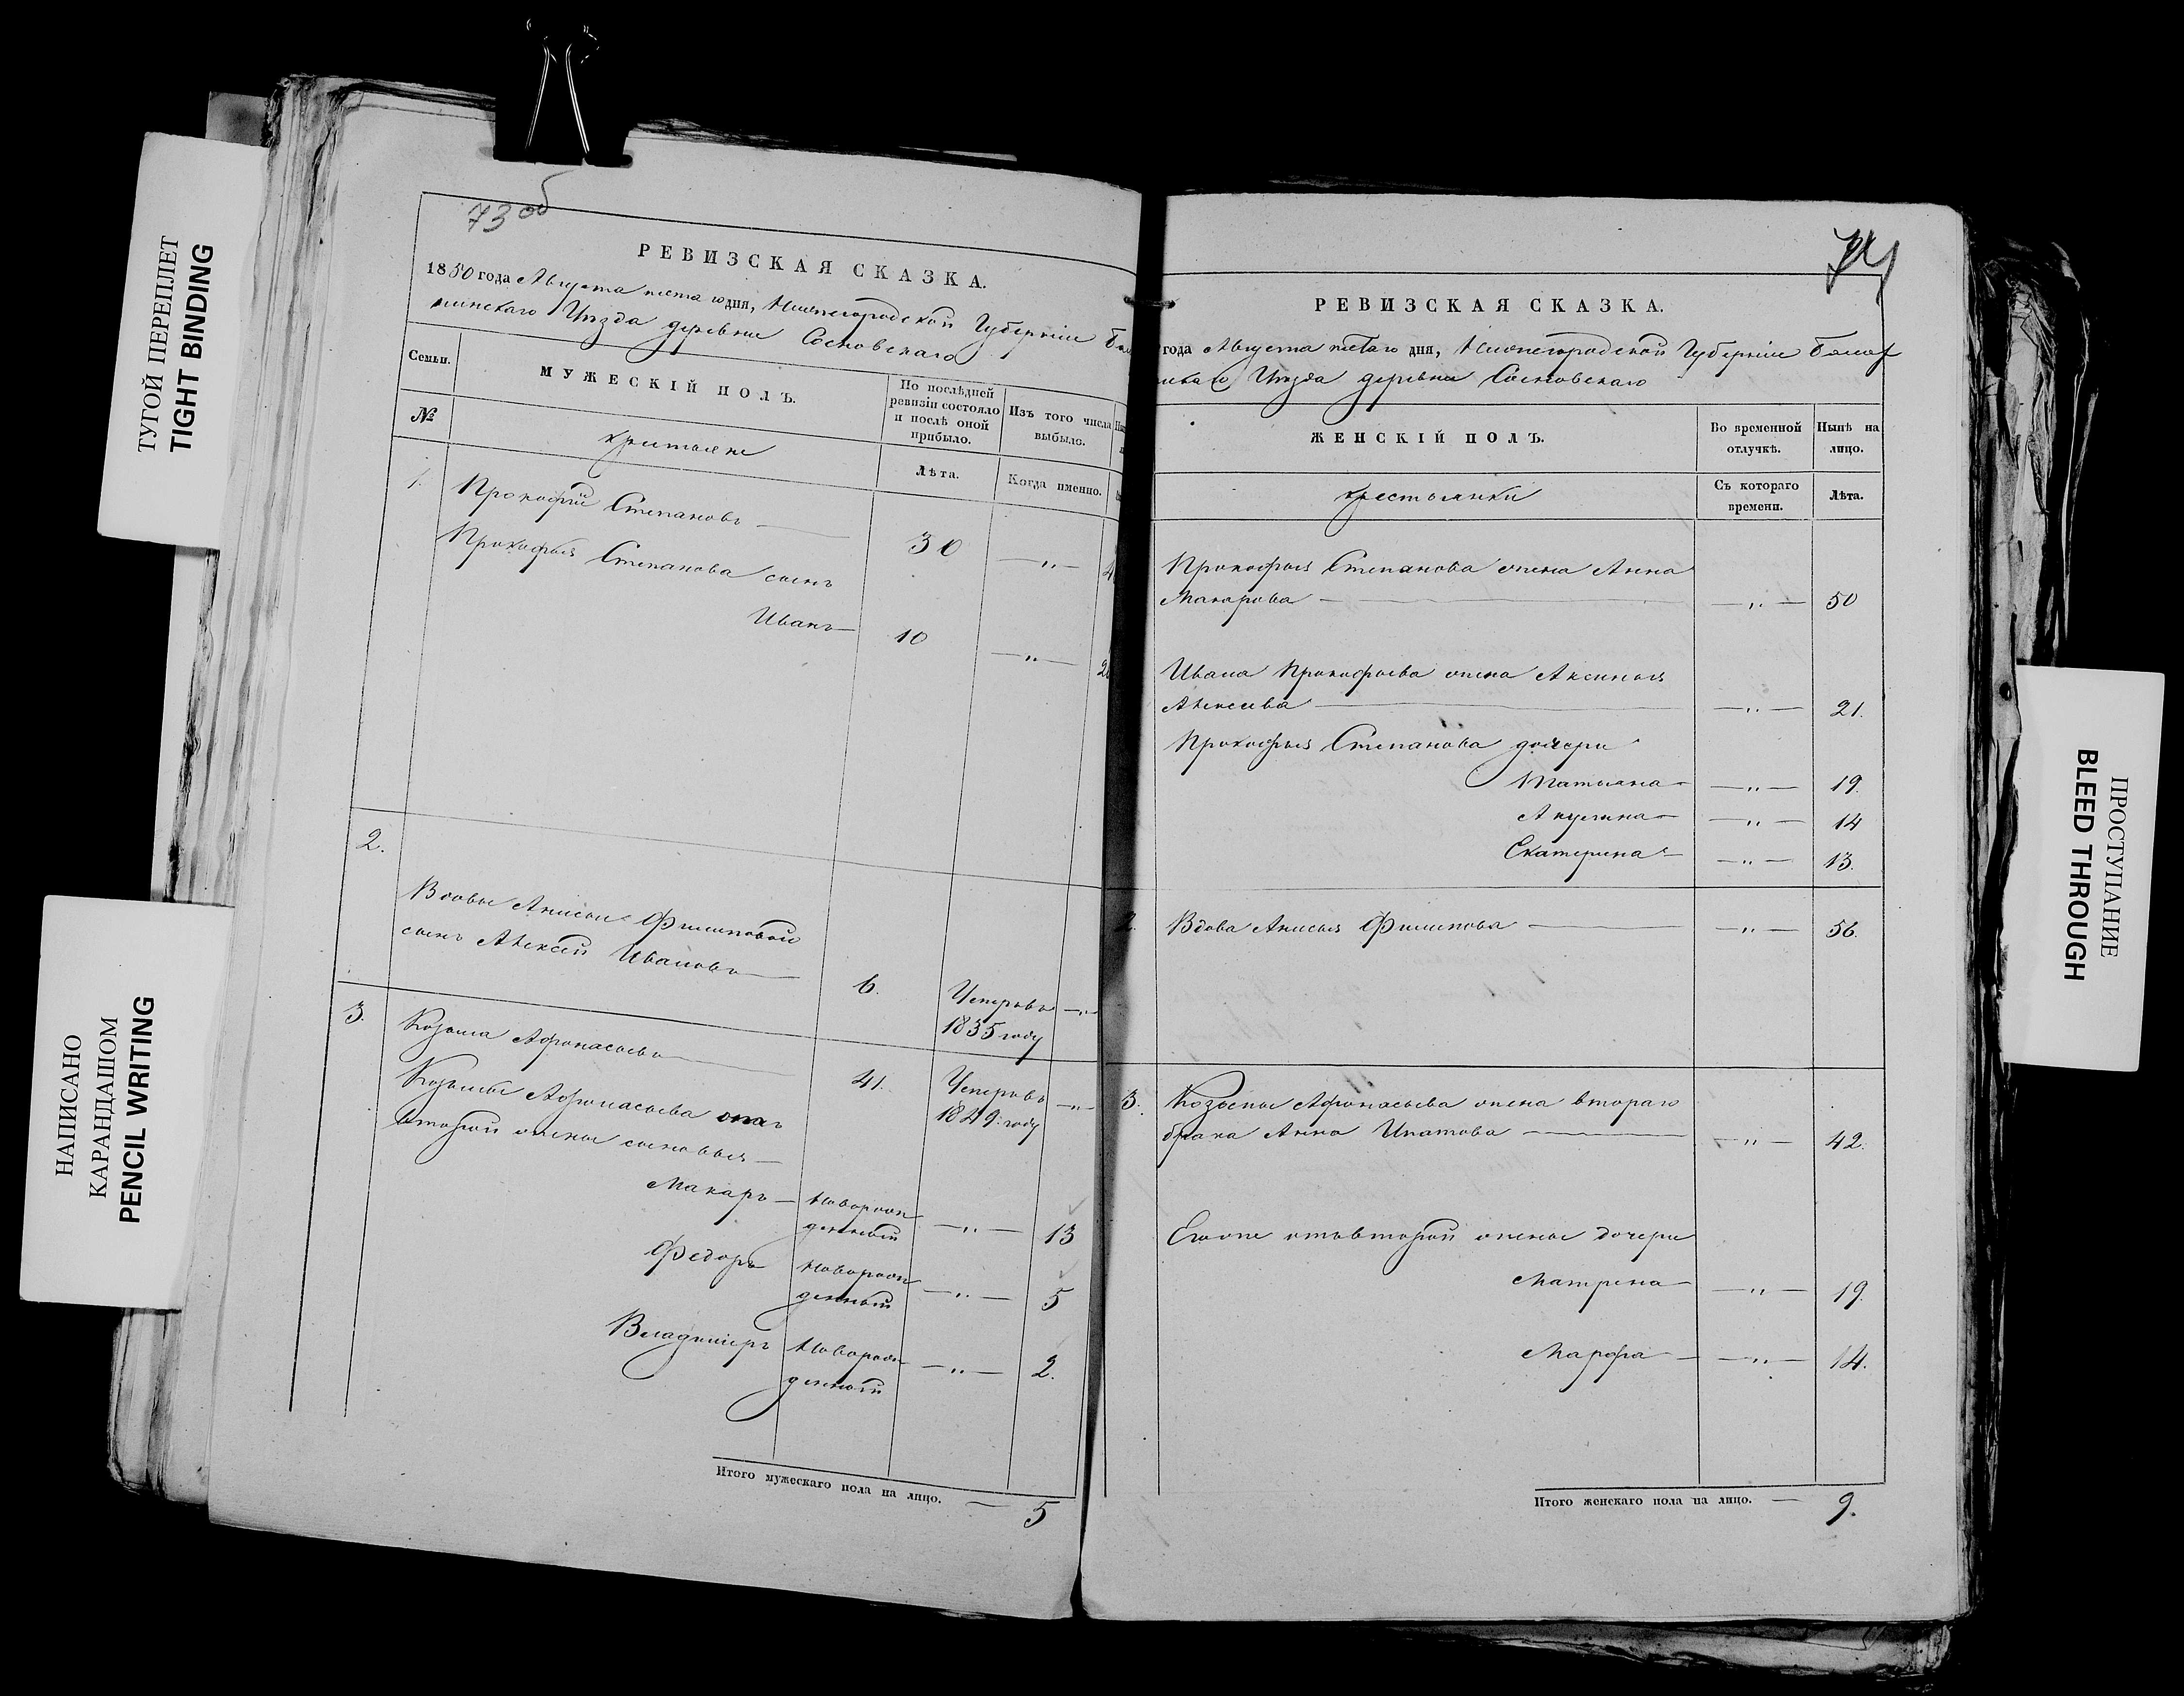 ТУГОЙ ПЕРЕПЛЕТ
TIGHT BINDING
НАПИСАНО
КАРАНДАШОМ
PENCIL WRITING
73 об
РЕВИЗСКАЯ СКАЗКА.
1850 года Августа пятаго дня, Нижегородской Губерніи
Уѣзда деревни Сосновскаго
Семьи.
МУЖЕСКІЙ ПОЛЪ.
По послѣдней
ревизіи состояло
и послѣ оной
прибыло.
Изъ того числа
выбыло.
№
крестьяне
Лѣта.
Когда именно.
1.
Прокофій Степановъ —
30
— „ —
Прокофья Степанова сынъ
Иванъ —
10
— „ —
2.
Вдовы Анисьи Филиповой
сынъ Алексѣй Ивановъ —
6.
Умеръ въ
1835 году
— „ —
3.
Козьма Афонасьевъ —
41.
Умеръ въ
1849. году
— „ —
Козьмы Афонасьева отъ
второй жены сыновья —
Макаръ —
Новорож
денный
— „ —
13
Федоръ
Новорож
денный
— „ —
5
Владимиръ
Новорож
денный
— „ —
2.
Итого мужескаго пола на лицо. —
5
74
РЕВИЗСКАЯ СКАЗКА.
года Августа пятаго дня, Нижегородской Губерніи
Уѣзда деревни Сосновскаго
ЖЕНСКІЙ ПОЛЪ.
Во временной
отлучкѣ.
Нынѣ на
лицо.
крестьянки
Съ котораго
времени.
Лѣта.
Прокофья Степанова жена Анна
Макарова —
— „ —
50
Ивана Прокофьева жена Аксинья
Алексеева —
— „ —
21.
Прокофья Степанова дочери
Татьяна —
— „ —
19.
Акулина —
— „ —
14
Екатерина —
— „ —
13.
2.
Вдова Анисья Филипова —
— „ —
56.
3.
Козьмы Афонасьева жена втораго
брака Анна Ипатова —
— „ —
42.
Егоже отъ второй жены дочери
Матрена —
— „ —
19.
Марфа —
— „ —
14.
Итого женскаго пола на лицо. —
9.
ПРОСТУПАНИЕ
BLEED THROUGH